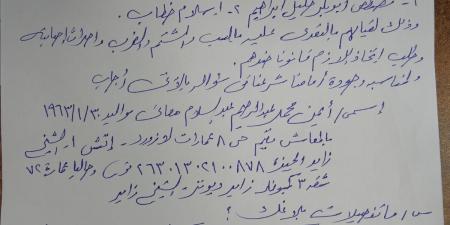 ١- مصطفى ابوبكر خليل ابراهيم ٢- اسلام خطاب
وذلك لقيامهم بالتعدى عليه بالسب والشتم والضرب واحداث اصابته
وطلب اتخاذ اللازم قانونا ضدهم.
ولمناسبة وجوده أمامنا شرعنا فى سؤاله بالآتى أجاب
اسمى/ أيمن محمد عبدالرحيم عبدالسلام مواليد ١٩٦٣/١/٣٠
بالمعاش مقيم ٨ عمارات لازورد - الشيخ
زايد الجيزة ٢٦٣٠١٣٠٢١٠٠٨٧٨ وحاليا عمارة ٧٢
شقة ٣ كمبوند زايد ديونز الشيخ زايد
س/ ما تفصيلات بلاغك؟